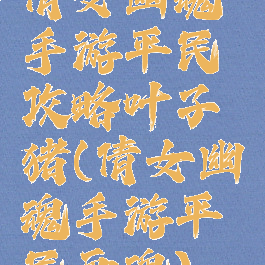 倩女幽魂
手游平民
攻略叶子
猪(倩女幽
魂手游平
民平魂)